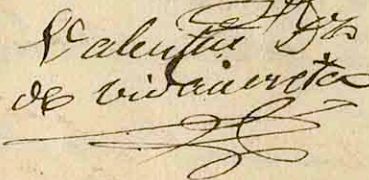 Valentin Dz
de vidaurreta